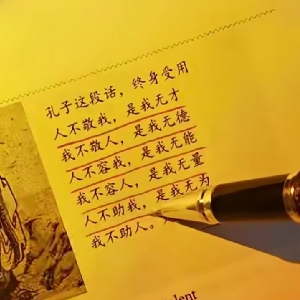 孔子这段话，终身受用
人不敬我，是我无才
我不敬人，是我无德
人不容我，是我无能
我不容人，是我无量
人不助我，是我无为
我不助人。